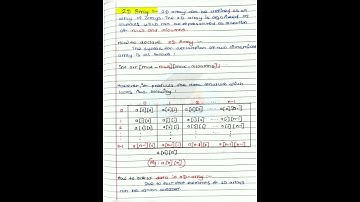 2D Array :- 2D array can be defined as an
array of arrays. The 2D array is organized as
matrices which can be represented as
of rows and columns.
How to declare 2D Array :-
The syntax for declaration of two dimensional
array is as follows :
int arr[max-rows][max-columns];
the data structure which
looks like following :
0 1 2 n-1
0 a[0][0] a[0][1] a[0][2] a[0][n-1]
1 a[1][0] a[1][1] a[1][2] a[1][n-1]
2 a[2][0] a[2][1] a[2][2] a[2][n-1]
n-1 a[n-1][0] a[n-1][1] a[n-1][2] a[n-1][n-1]
a[n][n]
How to data in 2D-array :-
Due to fact that elements of 2D arrays
can be